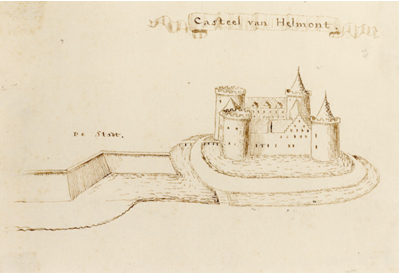 Casteel van Helmont.
De Stadt.